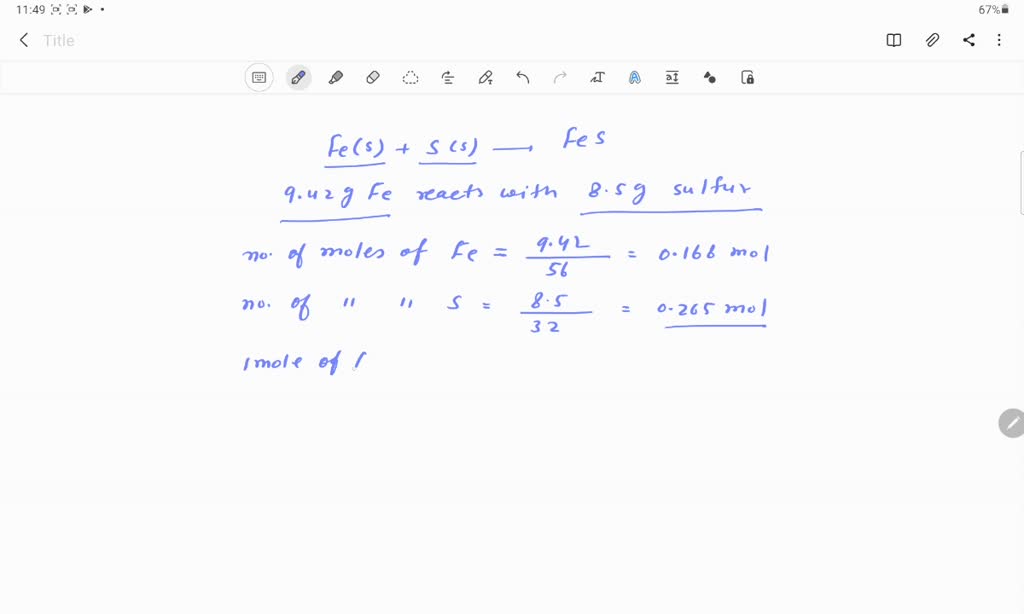 11:49
67%
Title
Fe(s) + S(s) ⟶ Fes
9.42g Fe reacts with 8.5g sulfur
no. of moles of Fe = 9.42/56 = 0.168 mol
no. of " " S = 8.5/32 = 0.265 mol
1 mole of